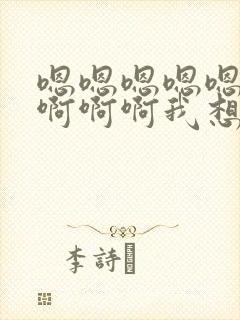 嗯嗯嗯嗯嗯
啊啊啊我想
李詩